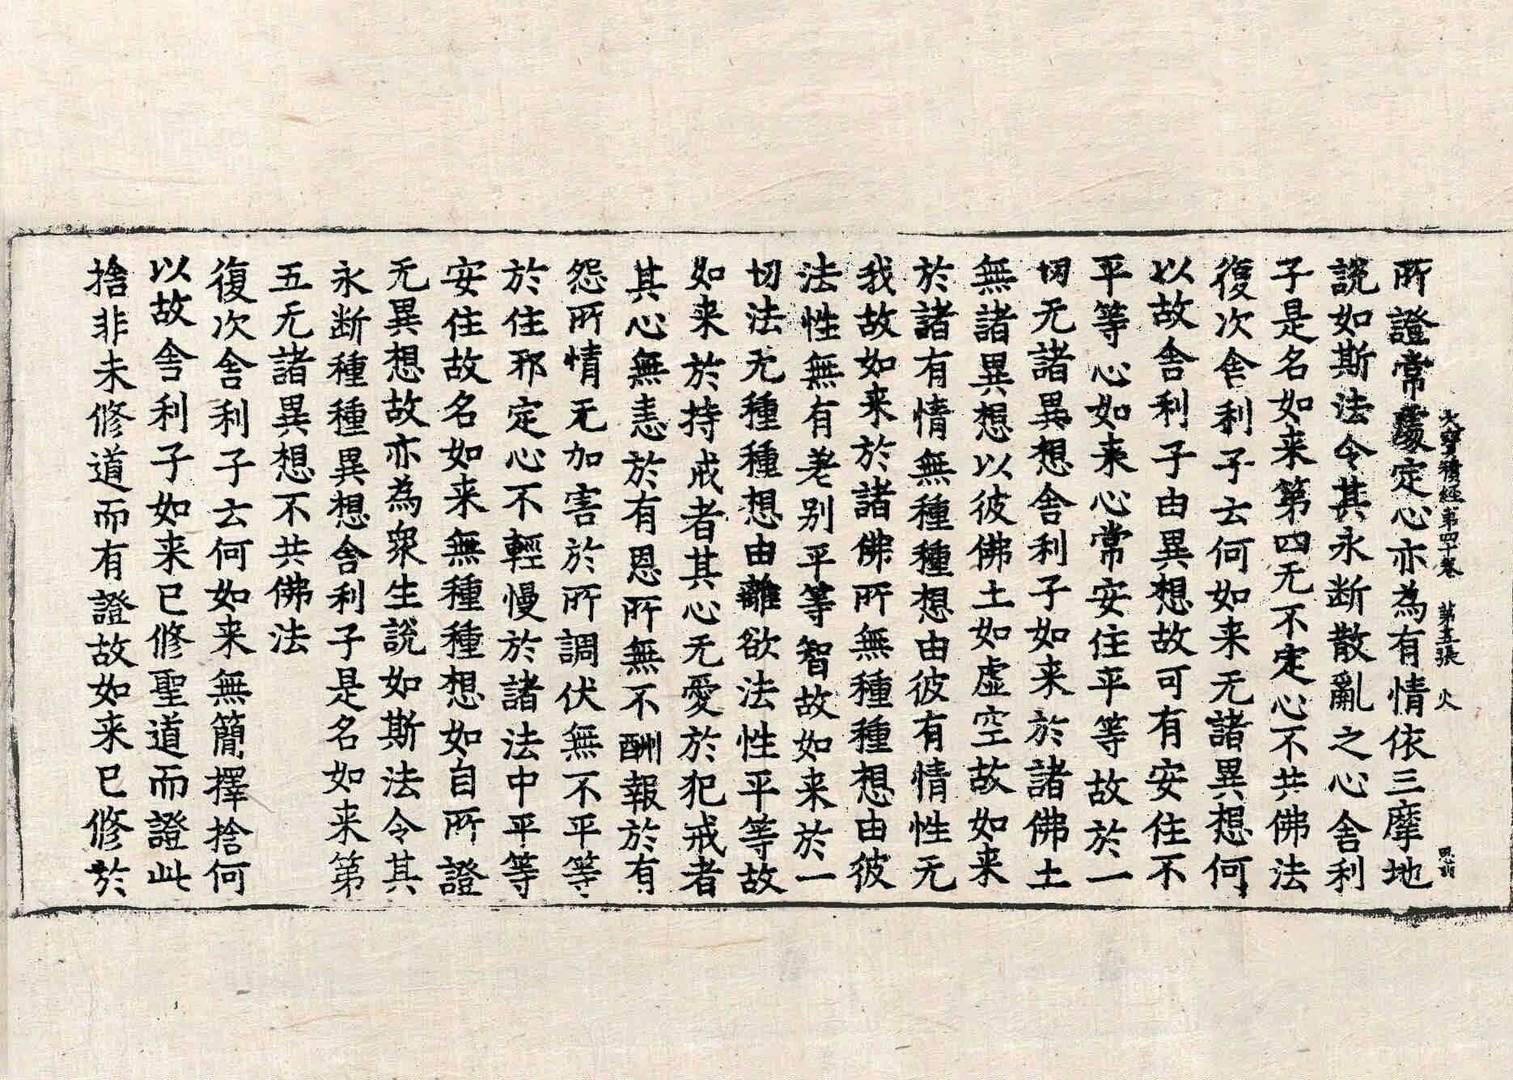 大寶積經第四十卷 第五張 火
所證常處定心亦為有情依三摩地
說如斯法令其永断散亂之心舍利
子是名如来第四无不定心不共佛法
復次舍利子云何如来无諸異想何
以故舍利子由異想故可有安住不
平等心如来心常安住平等故於一
切无諸異想舍利子如来於諸佛土
無諸異想以彼佛土如虛空故如来
於諸有情無種種想由彼有情性无
我故如来於諸佛所無種種想由彼
法性無有差别平等智故如来於一
切法无種種想由離欲法性平等故
如来於持戒者其心无愛於犯戒者
其心無恚於有恩所無不酬報於有
怨所情无加害於所調伏無不平等
於住邪定心不輕慢於諸法中平等
安住故名如来無種種想如自所證
无異想故亦為衆生說如斯法令其
永断種種異想舍利子是名如来第
五无諸異想不共佛法
復次舍利子云何如来無簡擇捨何
以故舍利子如来已修聖道而證此
捨非未修道而有證故如来已修於